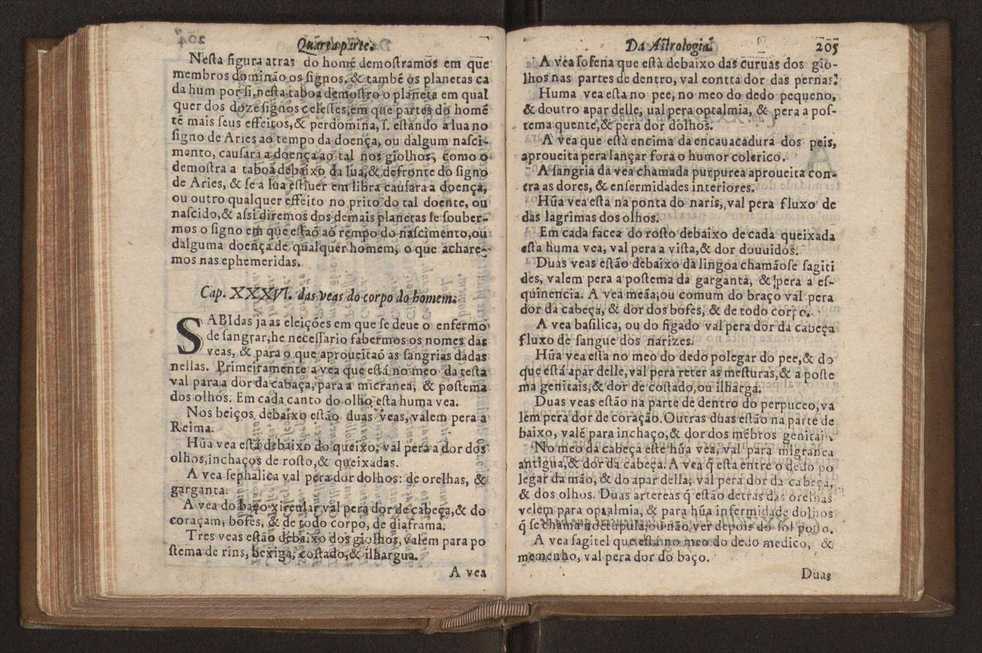 Quarta parte.
Nesta figura atras do homẽ demostramos em que
membros dominão os signos, & tambẽ os planetas ca
da hum por si, nesta taboa demostro o planeta em qual
quer dos doze signos celestes, em que partes do homẽ
tẽ mais seus effeitos, & perdomina, s. estando a lua no
signo de Aries ao tempo da doença, ou dalgum nasci-
mento, causara a doença ao tal nos giolhos, como o
demostra a taboa debaixo da lũa, & defronte do signo
de Aries, & se a lũa estiuer em libra causara a doença,
ou outro qualquer effeito no prito do tal doente, ou
nascido, & assi diremos dos demais planetas se souber-
mos o signo em que estaõ ao tempo do nascimento, ou
dalguma doença de qualquer homem, o que achare-
mos nas ephemeridas.
Cap. XXXVI. das veas do corpo do homem.
SABIdas ja as eleições em que se deue o enfermo
de sangrar, he necessario sabermos os nomes das
veas, & para o que aproueitaõ as sangrias dadas
nellas. Primeiramente a vea que está no meo da testa
val para a dor da cabaça, para a micranea, & postema
dos olhos. Em cada canto do olho esta huma vea.
Nos beiços debaixo estão duas veas, valem pera a
Reima.
Hũa vea está debaixo do queixo, val pera a dor dos
olhos, inchaços de rosto, & queixadas.
A vea sephalica val pera dor dolhos: de orelhas, &
garganta.
A vea do baço xircular val pera dor de cabeça, & do
coraçam, bofes, & de todo corpo, de diaframa.
Tres veas estão debaixo dos giolhos, valem para po
stema de rins, bexiga, costado, & ilhargua.
A vea
Da Astrologia. 205
A vea sofena que està debaixo das curuas dos gio-
lhos nas partes de dentro, val contta dor das pernas.
Huma vea esta no pee, no meo do dedo pequeno,
& doutro apar delle, val pera optalmia, & pera a pos-
tema quente, & pera dor dolhos.
A vea que està encima da encauacadura dos peis,
aproueita pera lançar fora o humor colerico.
A sangria da vea chamada purpurea aproueita con-
tra as dores, & enfermidades interiores.
Hũa vea està na ponta do naris, val pera fluxo de
das lagrimas dos olhos.
Em cada facea do rosto debaixo de cada queixada
esta huma vea, val pera a vista, & dor douuidos.
Duas veas estão debaixo da lingoa chamãose sagiti
des, valem pera a postema da garganta, & pera a es-
quinencia. A vea meãa, ou comum do braço val pera
dor da cabeça, & dor dos bofes, & de todo corpo.
A vea basilica, ou do figado val pera dor da cabeça
fluxo de sangue dos narizes.
Hũa vea esta no meo do dedo polegar do pee, & do
que està apar delle, val pera reter as mesturas, & a poste
ma genitais, & dor de costado, ou ilharga.
Duas veas estão na parte de dentro do perpuceo, va
lem pera dor de coração. Outras duas estão na parte de
baixo, valẽ para inchaço, & dor dos mẽbros genitais.
No meo da cabeça este hũa vea, val para migranea
antigua, & dor da cabeça. A vea q̃ esta entre o dedo po
legar da mão, & do apar della, val pera dor da cabeça,
& dos olhos. Duas artereas q̃ estão detras das orelhas
velem para optalmia, & para hũa infermidade dolhos
q̃ se chama noctepula, ou não ver depois do sol posto.
A vea sagitel que està no meo do dedo medico, &
memenho, val pera dor do baço.
Duas